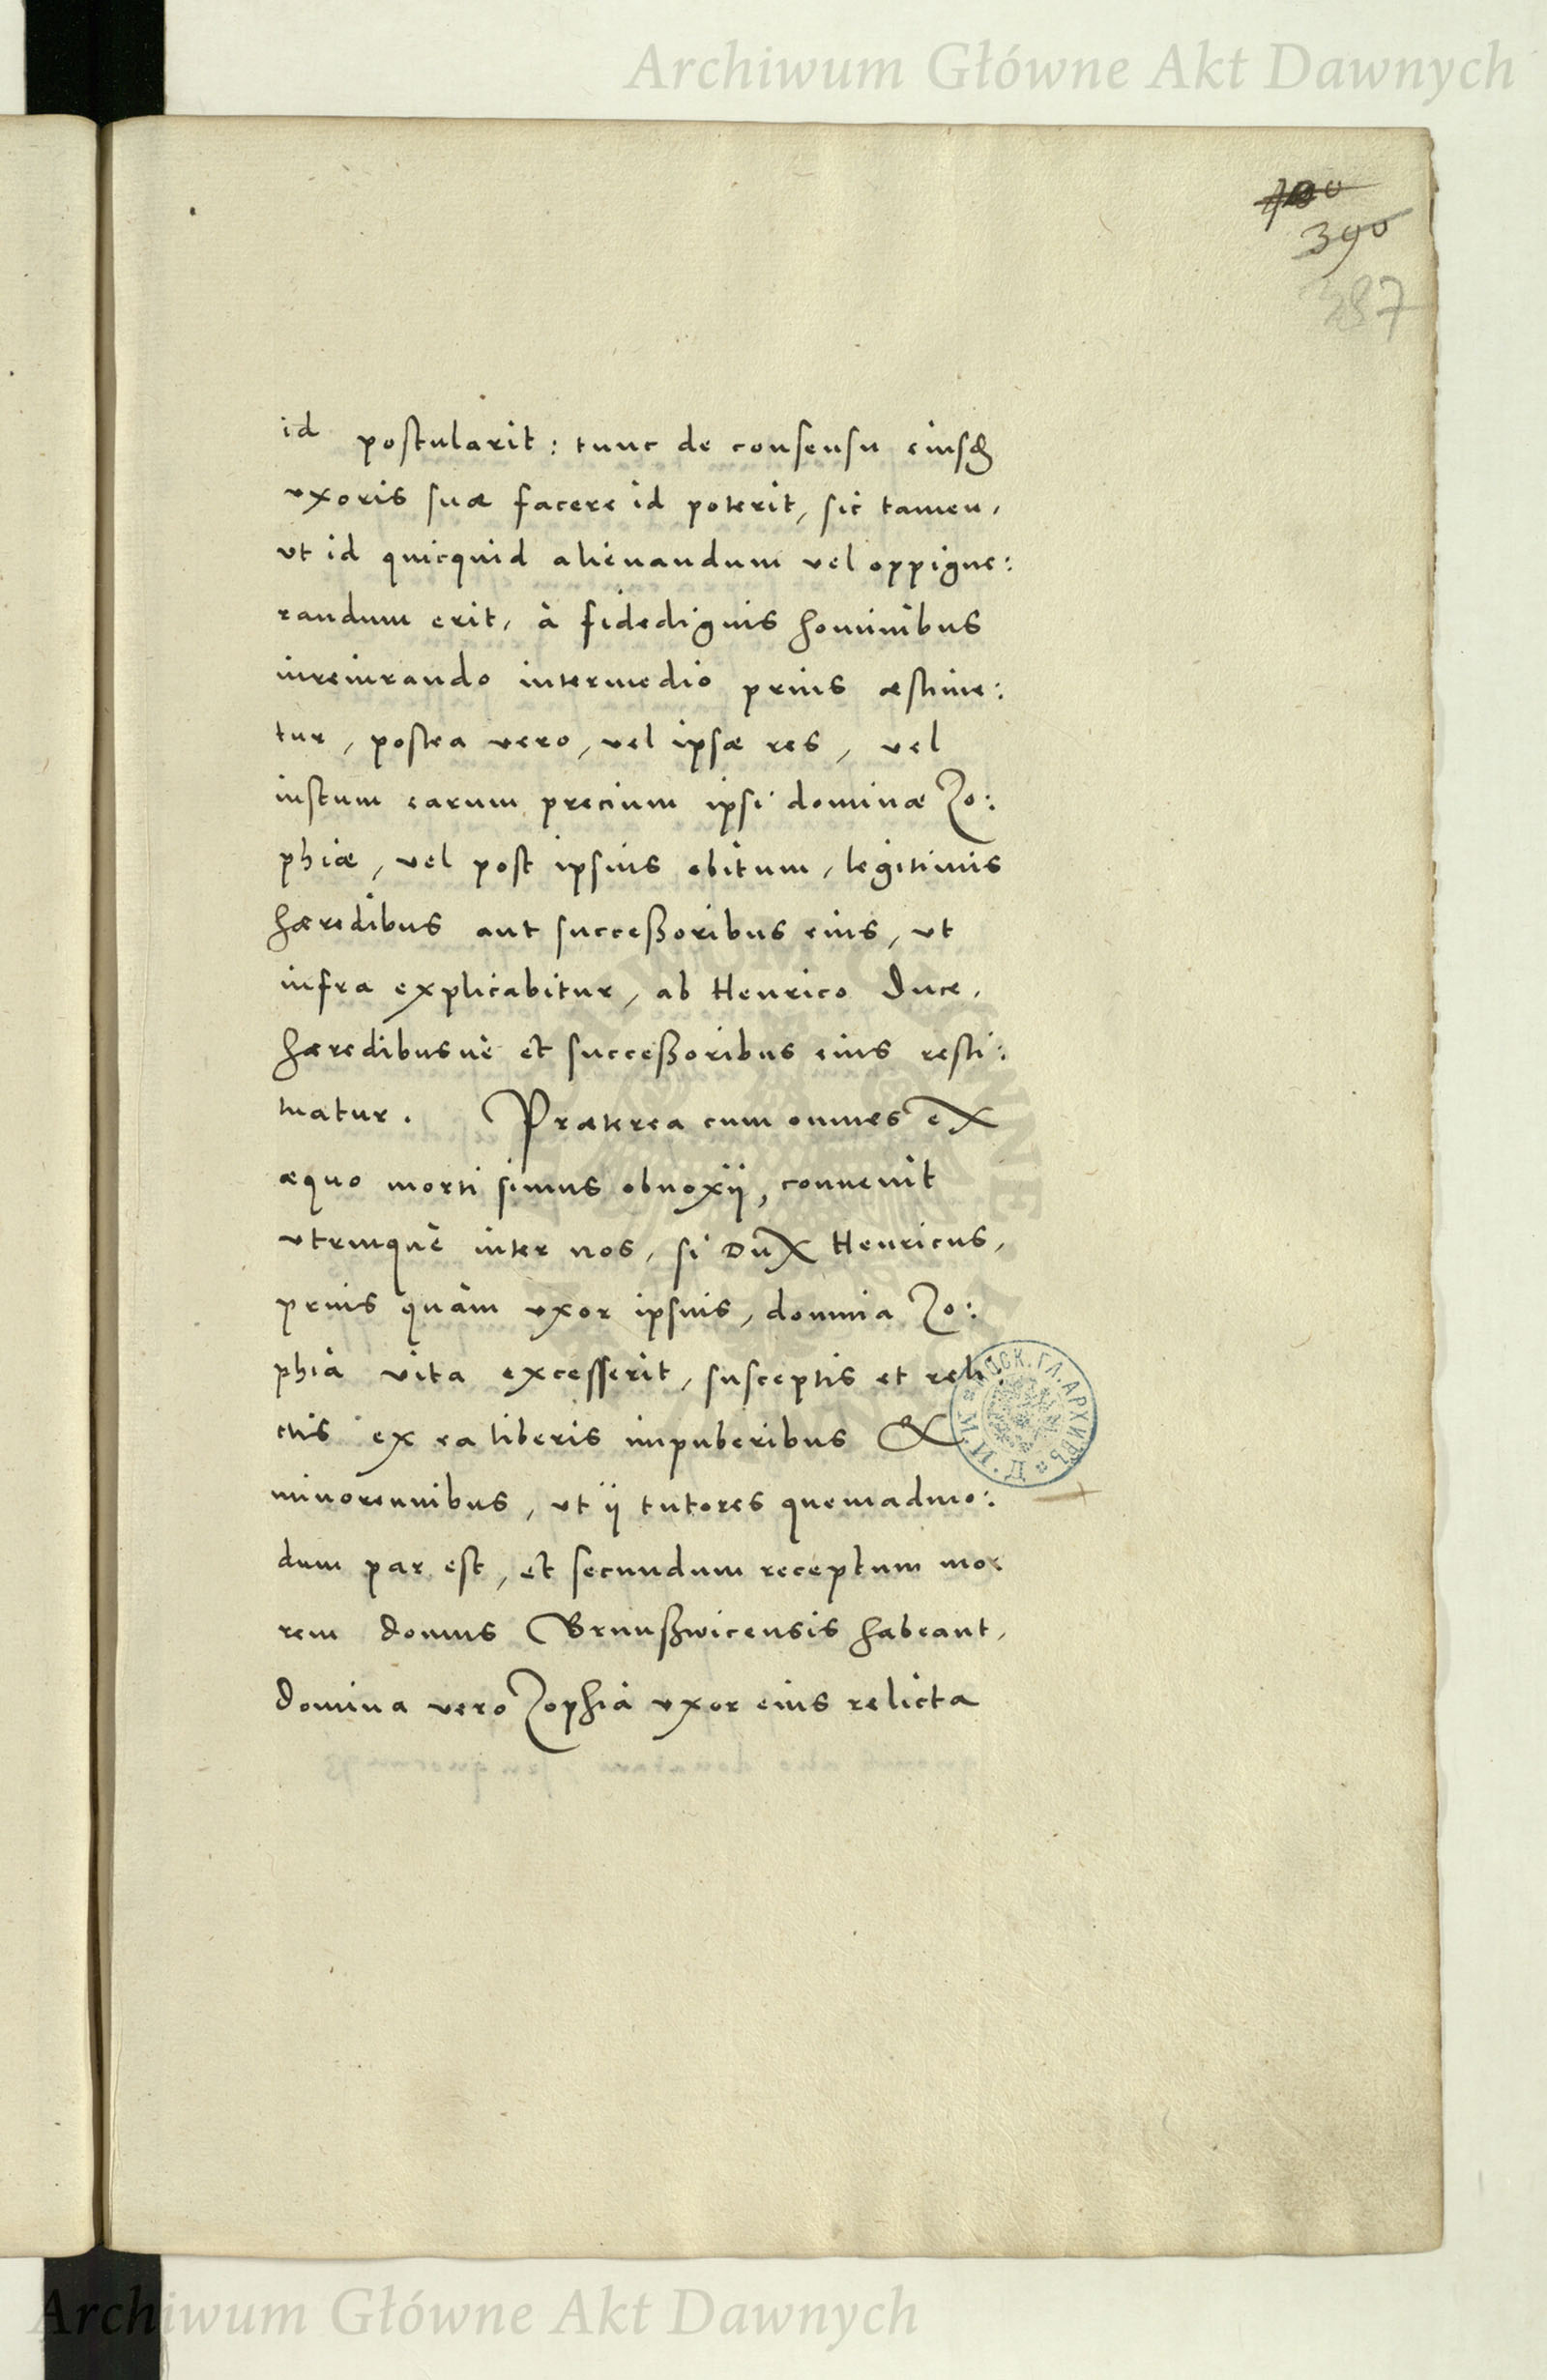 Archiwum Główne Akt Dawnych
390
387
id postularit: tunc de consensu eiusd
vxoris suæ facere id poterit, sic tamen,
vt id quicquid alienandum vel oppigne:
randum erit, à fidedignis hominibus
iureiurando intermedio prius æstime:
tur, postea vero, vel ipsæ res, vel
iustum earum precium ipsi dominæ Zo:
phiæ, vel post ipsius obitum, legitimis
hæredibus aut succeßoribus eius, vt
infra explicabitur, ab Henrico Duce,
hæredibusuè et succeßoribus eius resti:
tuatur. Præterea cum omnes ex
æquo morti simus obnoxij, conuenit
vtrinquè inter nos, si Dux Henricus,
prius quàm vxor ipsius, domina Zo:
phia vita excesserit, susceptis et reli:
ctis ex ea liberis impuberibus &
minorennibus, vt ij tutores quemadmo:
dum par est, et secundum receptum mo
rem domus Brunßwicensis habeant,
Domina vero Zophia vxor eius relicta
Archiwum Główne Akt Dawnych